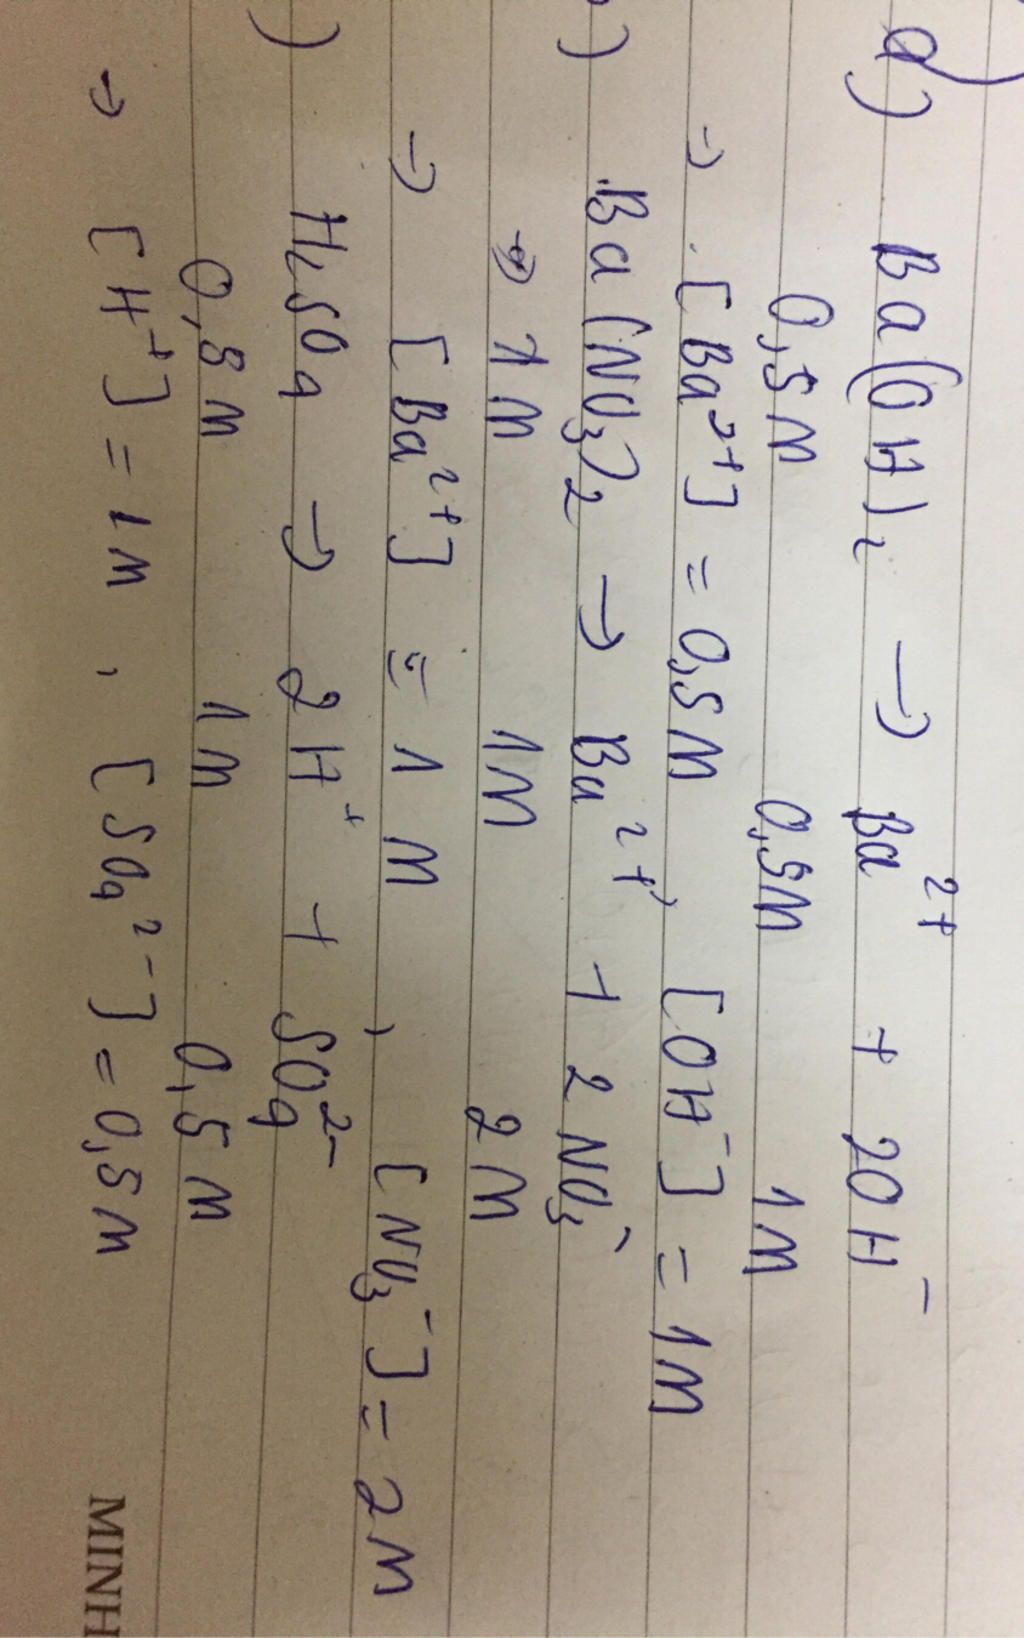 a) Ba(OH)₂ → Ba²⁺ + 2OH⁻
0,5M 0,5M 1M
→ [Ba²⁺] = 0,5M, [OH⁻] = 1M
) Ba(NO₃)₂ → Ba²⁺ + 2NO₃⁻
1M 1M 2M
→ [Ba²⁺] = 1M, [NO₃⁻] = 2M
) H₂SO₄ → 2H⁺ + SO₄²⁻
0,5M 1M 0,5M
→ [H⁺] = 1M, [SO₄²⁻] = 0,5M
MINH